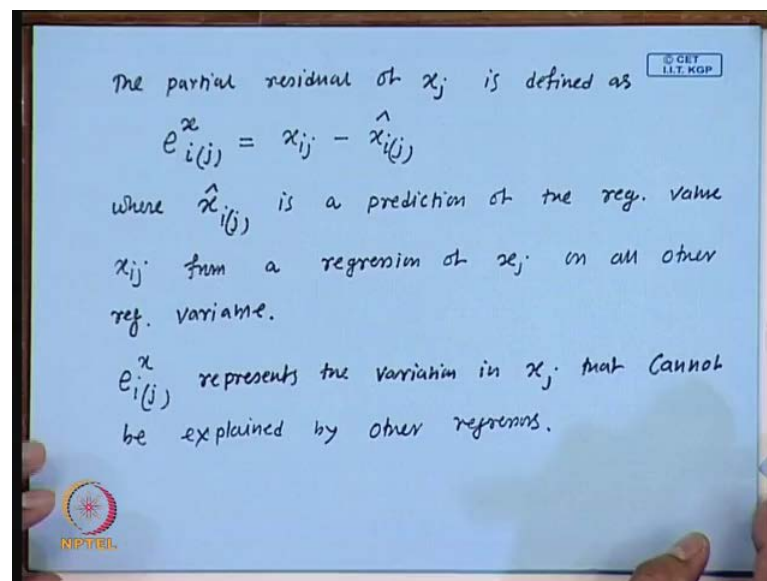 © CET
I.I.T. KGP
The partial residual of x_j is defined as
e^x_{i(j)} = x_{ij} - \hat{x}_{i(j)}
where \hat{x}_{i(j)} is a prediction of the reg. value
x_{ij} from a regression of x_j on all other
reg. variable.
e^x_{i(j)} represents the variation in x_j that cannot
be explained by other regressors.
NPTEL